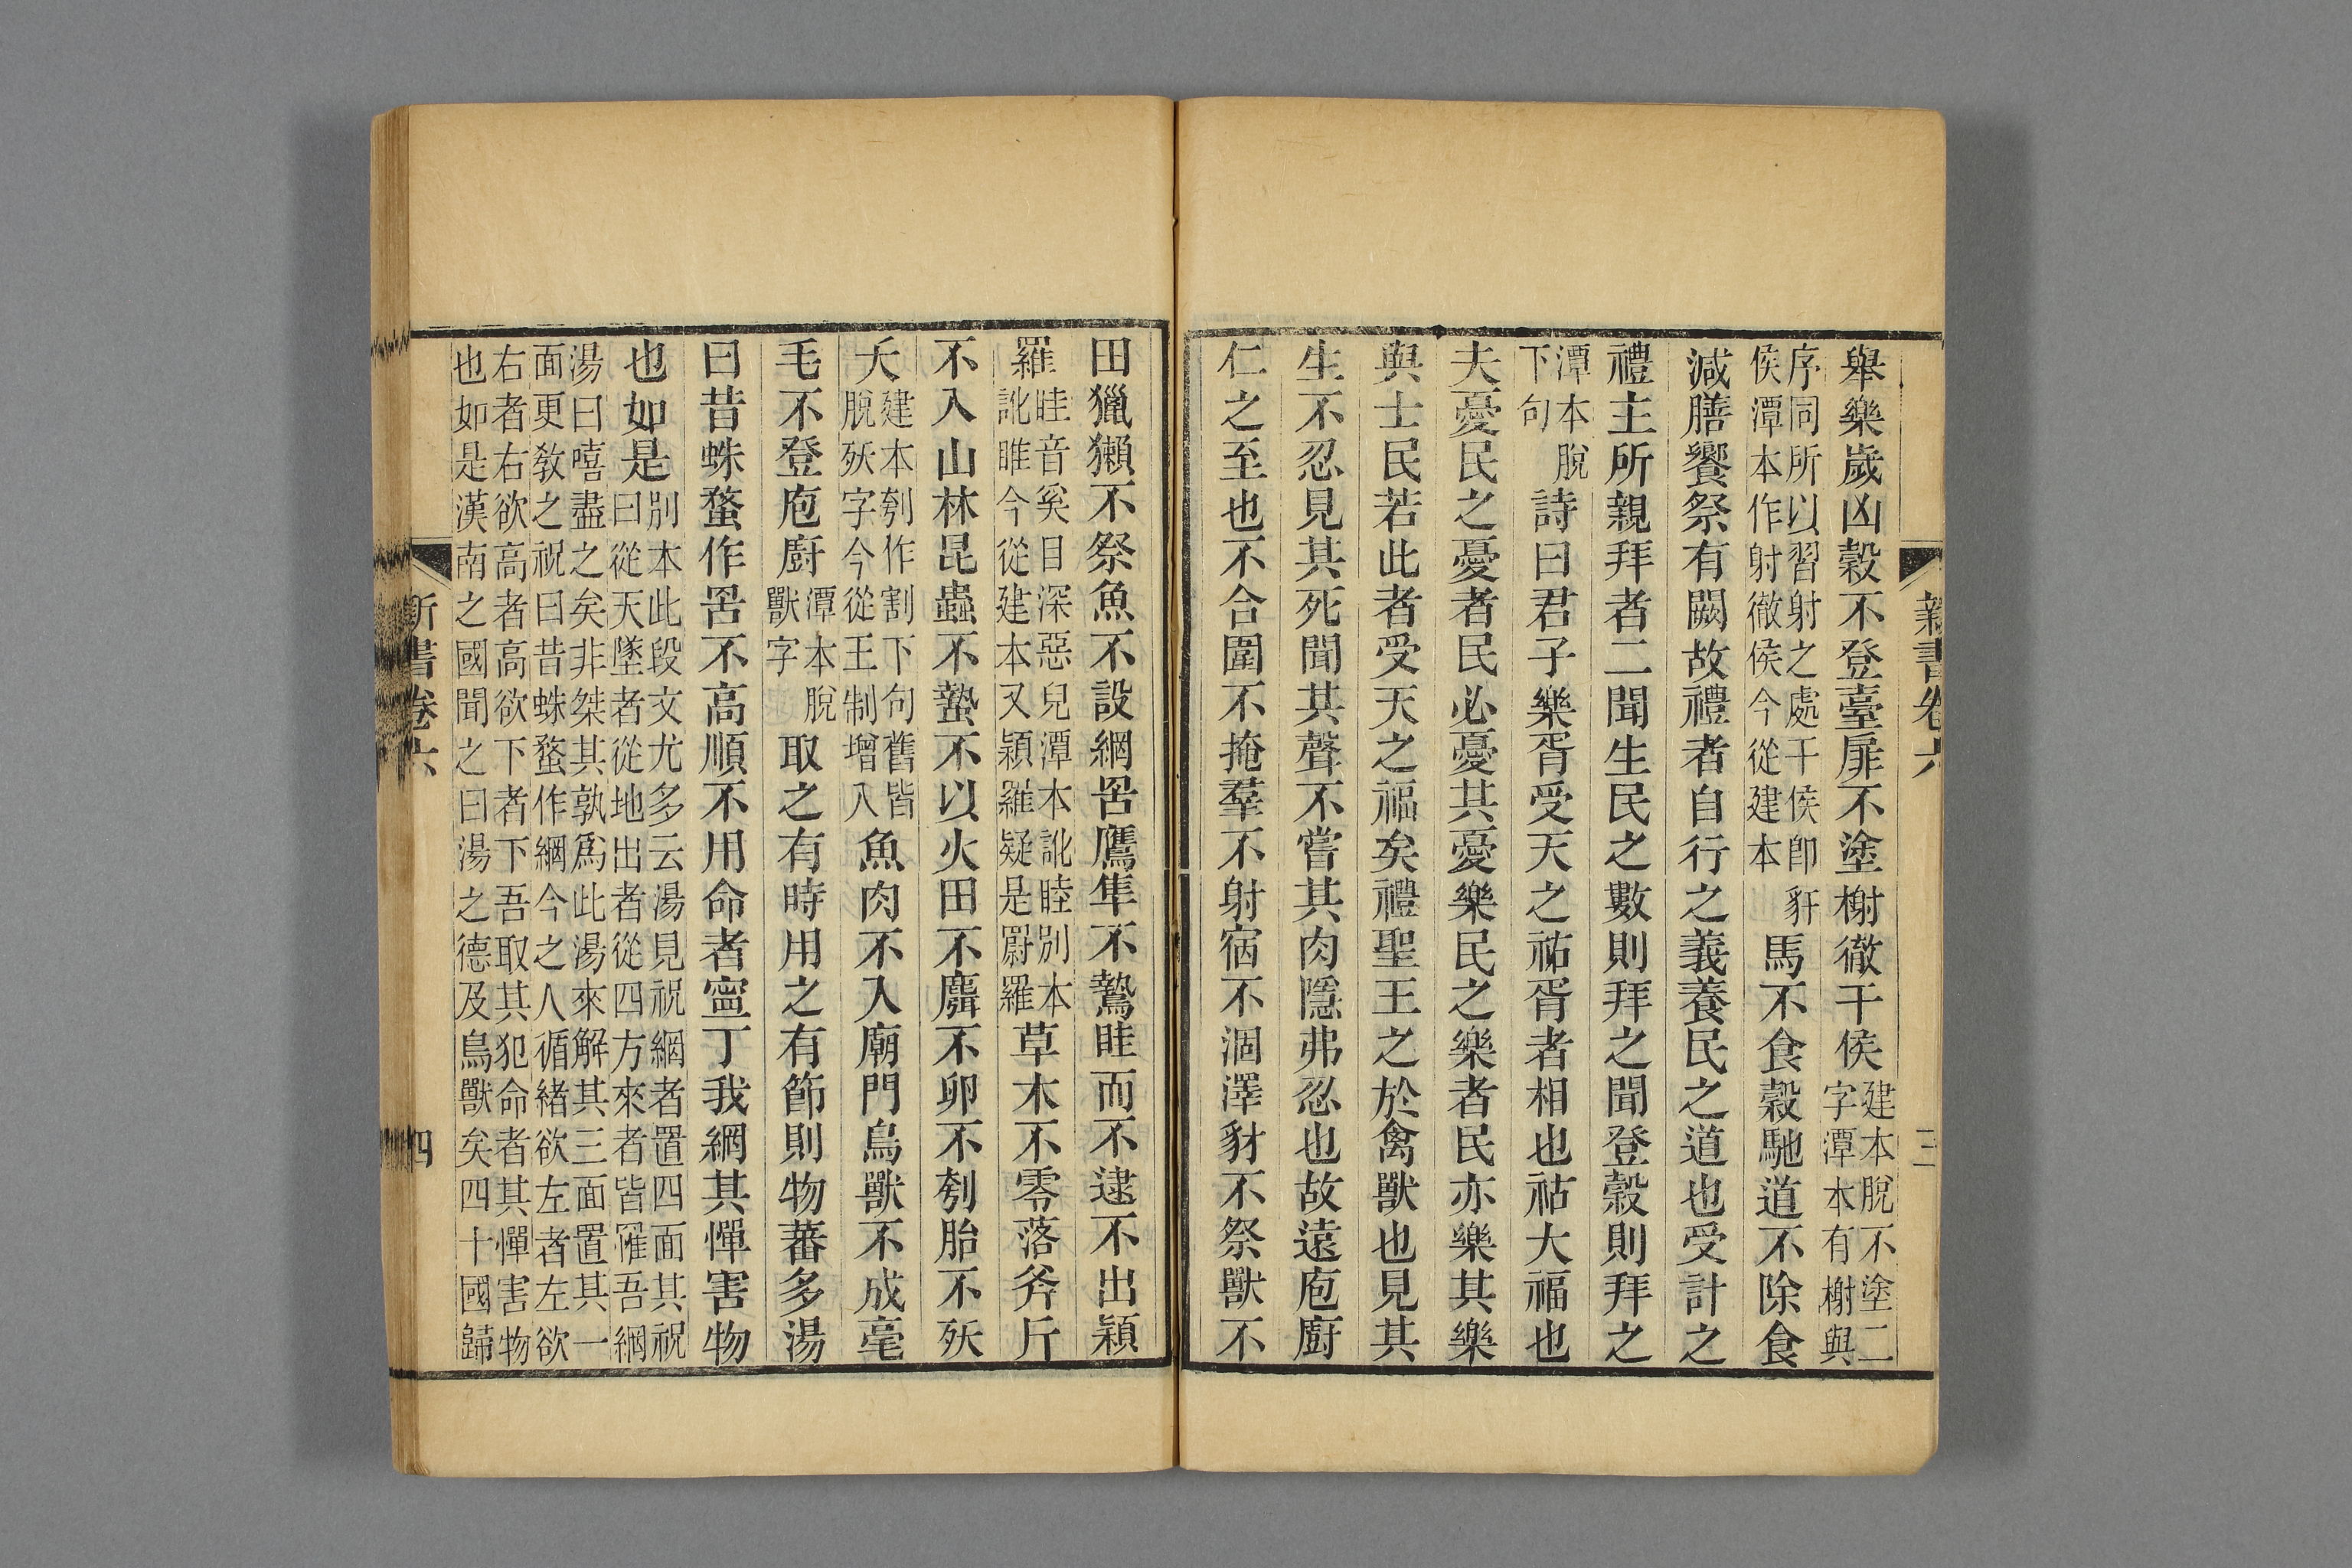 新書卷六
三
舉樂歲凶穀不登臺扉不塗榭徹干侯建本脫不塗二字潭本有榭與
序同所以習射之處干侯卽豻侯潭本作射徹侯今從建本馬不食穀馳道不除食
減膳饗祭有闕故禮者自行之義養民之道也受計之
禮主所親拜者二聞生民之數則拜之聞登穀則拜之
潭本脫下句詩曰君子樂胥受天之祜胥者相也祜大福也
夫憂民之憂者民必憂其憂樂民之樂者民亦樂其樂
與士民若此者受天之福矣禮聖王之於禽獸也見其
生不忍見其死聞其聲不嘗其肉隱弗忍也故遠庖廚
仁之至也不合圍不掩羣不射宿不涸澤豺不祭獸不
田獵獺不祭魚不設網罟鷹隼不鷙眭而不逮不出穎
羅眭音奚目深惡皃潭本訛睦別本訛睢今從建本又穎羅疑是罻羅草木不零落斧斤
不入山林昆蟲不蟄不以火田不麛不卵不刳胎不殀
夭建本刳作割下句舊皆脫殀字今從王制增入魚肉不入廟門鳥獸不成毫
毛不登庖廚潭本脫獸字取之有時用之有節則物蕃多湯
曰昔蛛蝥作罟不高順不用命者寧丁我網其憚害物
也如是別本此段文尤多云湯見祝網者置四面其祝曰從天墜者從地出者從四方來者皆罹吾網
湯曰嘻盡之矣非桀其孰爲此湯來解其三面置其一面更敎之祝曰昔蛛蝥作網今之人循緒欲左者左欲
右者右欲高者高欲下者下吾取其犯命者其憚害物也如是漢南之國聞之曰湯之德及鳥獸矣四十國歸
新書卷六
四